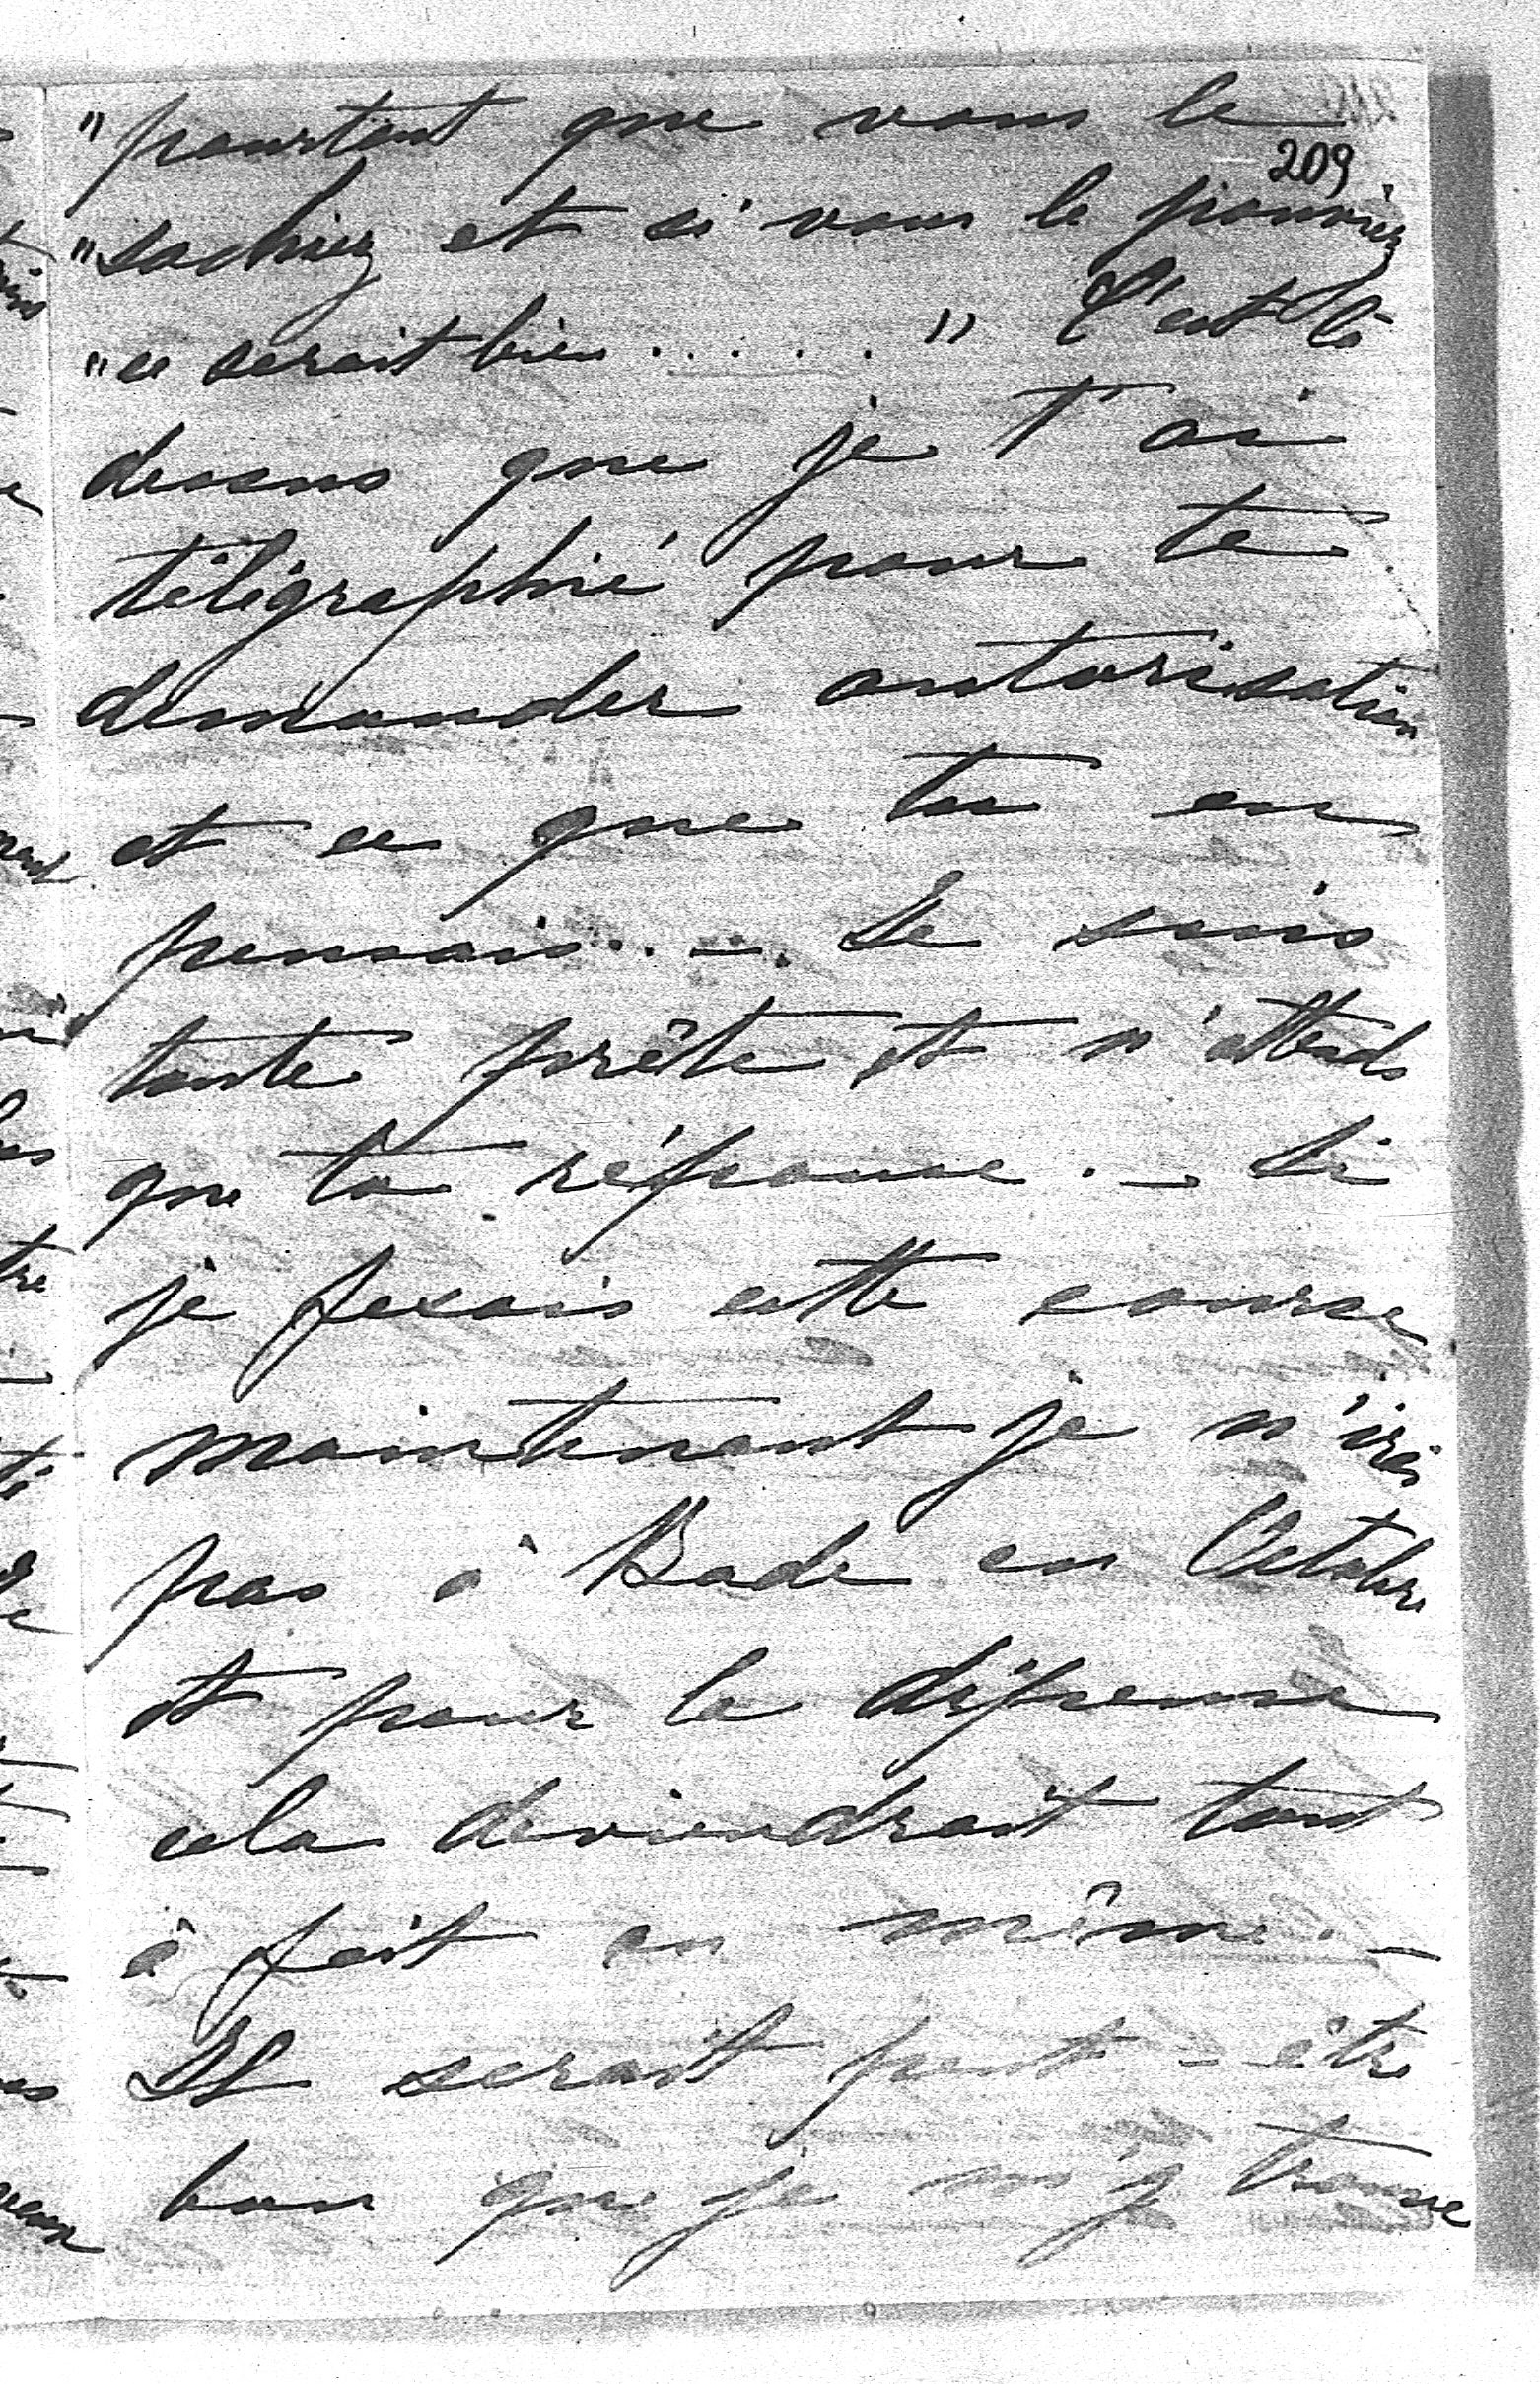 "pourtant que vous le
209
"sachiez et si vous le pouviez
"ce serait bien ..... " C'est là
dessus que je t'ai
télégraphié pour te
demander autorisation
et ce que tu en
pensais. — Je suis
toute prête et n'attends
que ta réponse. — Si
je fesais cette course
maintenant je n'irai
pas à Bade en Octobre
et pour la dépense
cela deviendrait tout
à fait au même. —
Il serait peut-être
bon que je m'y trouve